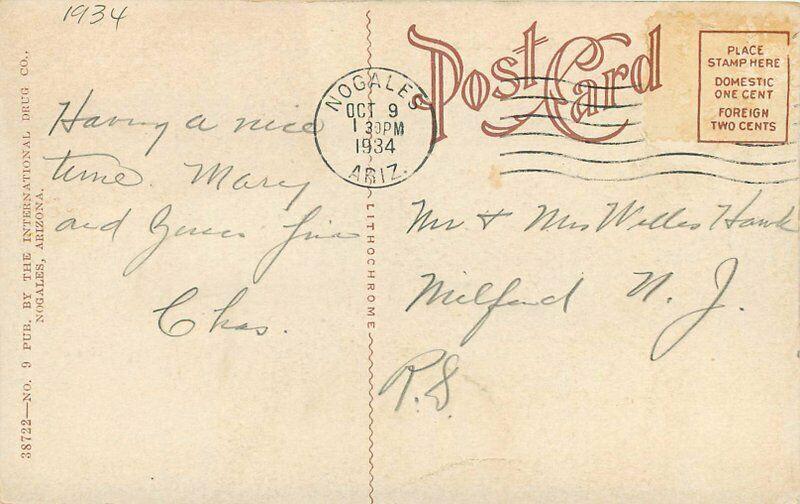 1934
Post Card
PLACE
STAMP HERE
DOMESTIC
ONE CENT
FOREIGN
TWO CENTS
NOGALES
OCT 9
1 30PM
1934
ARIZ.
Having a nice
time. Mary
and
Chas.
Mr & Mrs Willis Hawk
Milford N. J.
LITHOCHROME
38722—NO. 9 PUB. BY THE INTERNATIONAL DRUG CO.,
NOGALES, ARIZONA.